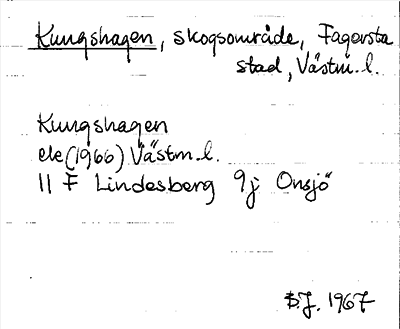 Kungshagen, skogsområde, Fagersta
stad, Västm. l.
Kungshagen
ele (1966) Västm. l.
11 F Lindesberg 9j Onsjö
B.J. 1967